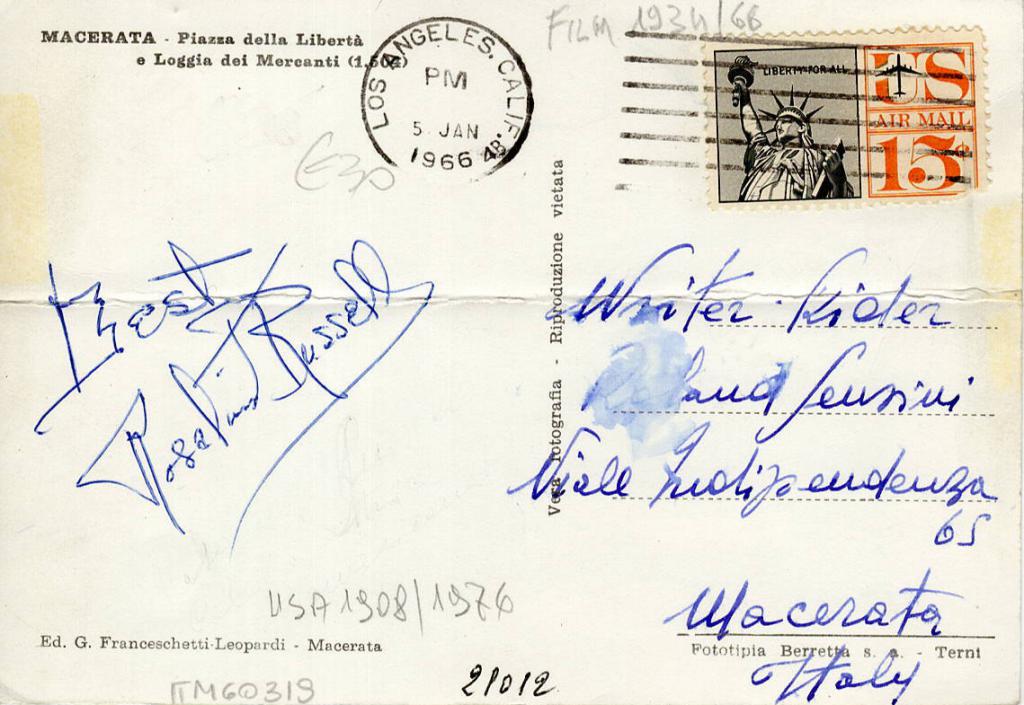 FILM 1934/66
MACERATA - Piazza della Libertà
e Loggia dei Mercanti
LOS ANGELES, CALIF.
PM
5 JAN
1966
LIBERTY FOR ALL
US
AIR MAIL
15¢
Vera fotografia - Riproduzione vietata
Best
Rosalind Russell
Writer Rider
Roland Sensini
Viale Indipendenza
65
Macerata
Italy
USA 1908/1976
Ed. G. Franceschetti-Leopardi - Macerata
Fototipia Berretta s. a. - Terni
ITM60319
21012